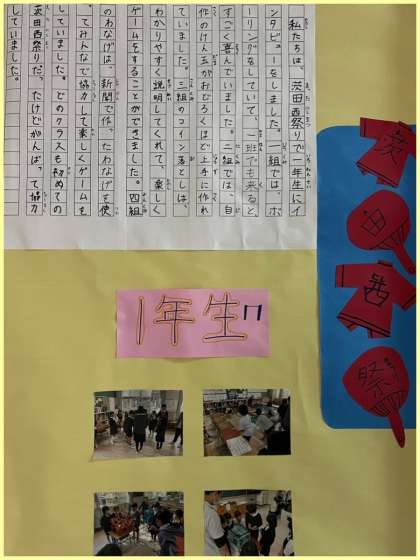 私たちは、茨田西祭りで一年生にイ
ンタビューをしました。一組では、ボ
ーリングをしていて、一班でも来ると、
すごく喜んでいました。二組では、自
作のけん玉がおどろくほど上手に作れ
ていました。三組のコイン落としは、
わかりやすく説明してくれて、楽しく
ゲームをすることができました。四組
のわなげは、新聞で作ったわなげを使
ってみんなで協力して楽しくゲームを
していました。どのクラスも初めての
茨田西祭りだったけどがんばって協力
していました。
茨
田
西
祭
1年生